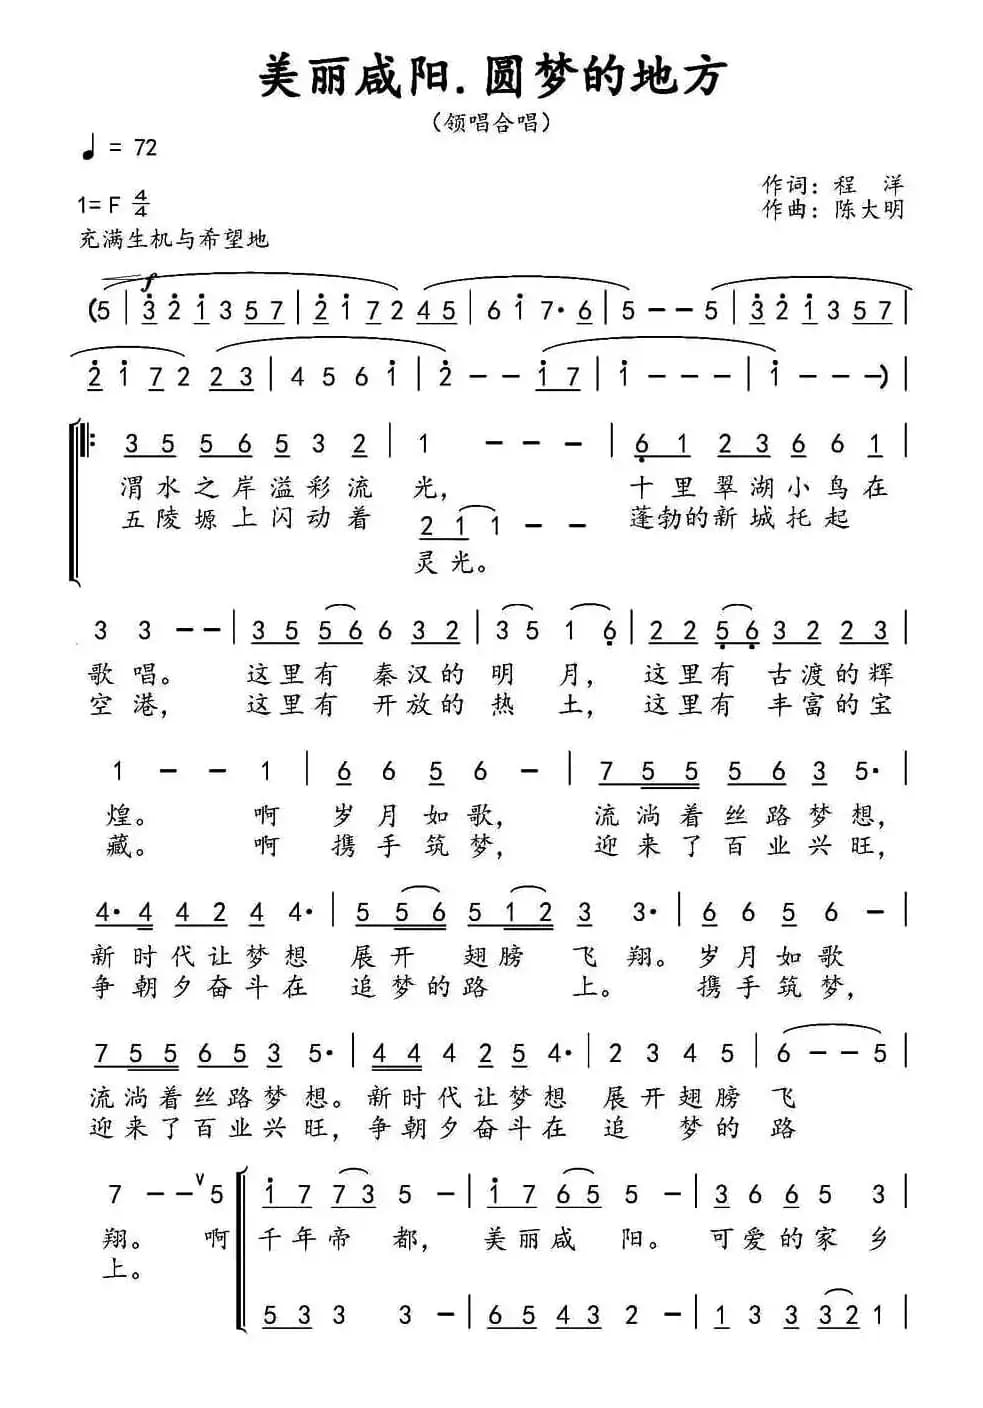 美丽咸阳.圆梦的地方
（领唱合唱）
♩ = 72
作词：程 洋
1=F 4/4
作曲：陈大明
充满生机与希望地
f
(5 | 3 2 1 3 5 7 | 2 1 7 2 4 5 | 6 1 7· 6 | 5 - - 5 | 3 2 1 3 5 7 |
2 1 7 2 2 3 | 4 5 6 1 | 2 - - 1 7 | 1 - - - | 1 - - -) |
3 5 5 6 5 3 2 | 1 - - - | 6 1 2 3 6 6 1 |
渭水之岸溢彩流 光， 十里翠湖小鸟在
五陵塬上闪动着 2 1 1 - - 蓬勃的新城托起
灵光。
3 3 - - | 3 5 5 6 6 3 2 | 3 5 1 6 | 2 2 5 6 3 2 2 3 |
歌唱。 这里有秦汉的明月， 这里有古渡的辉
空港， 这里有开放的热土， 这里有丰富的宝
1 - - 1 | 6 6 5 6 - | 7 5 5 5 6 3 5· |
煌。 啊 岁月如歌， 流淌着丝路梦想，
藏。 啊 携手筑梦， 迎来了百业兴旺，
4· 4 4 2 4 4· | 5 5 6 5 1 2 3 3· | 6 6 5 6 - |
新时代让梦想 展开翅膀飞翔。岁月如歌
争朝夕奋斗在 追梦的路上。 携手筑梦，
7 5 5 6 5 3 5· | 4 4 4 2 5 4· | 2 3 4 5 | 6 - - 5 |
流淌着丝路梦想。新时代让梦想 展开翅膀飞
迎来了百业兴旺，争朝夕奋斗在 追 梦的路
7 - - ∨ 5 | 1 7 7 3 5 - | 1 7 6 5 5 - | 3 6 6 5 3 |
翔。 啊 千年帝都， 美丽咸阳。 可爱的家乡
上。
5 3 3 3 - | 6 5 4 3 2 - | 1 3 3 3 2 1 |